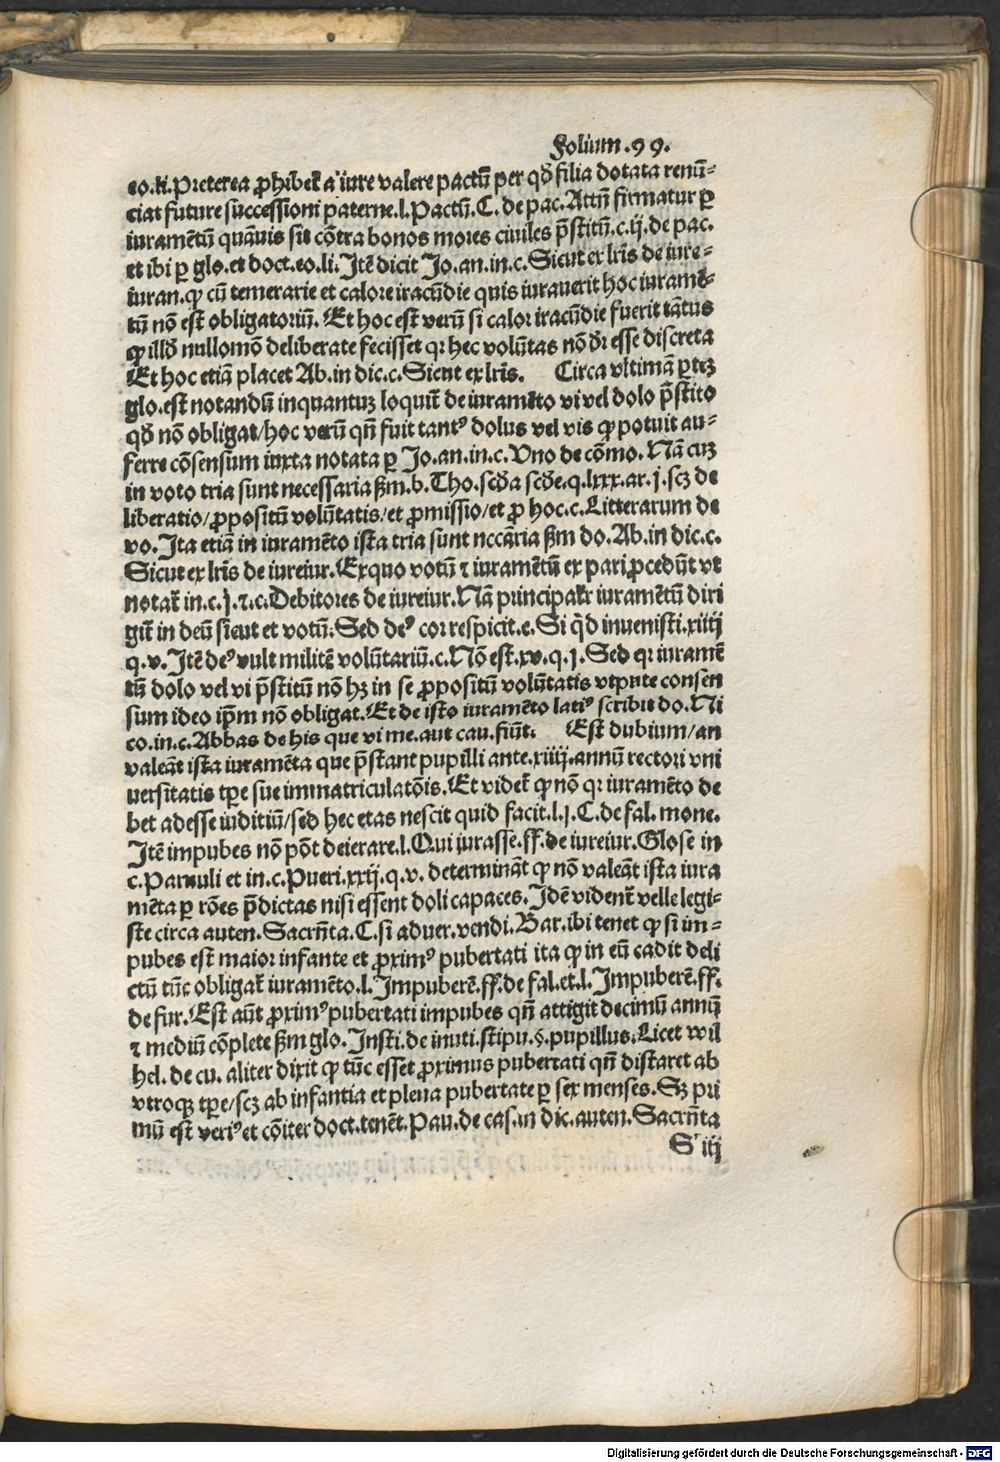 Folium .99.
eo.li. Preterea ꝓhibet᷑ a iure valere pactū per qḋ filia dotata renū-
ciat future successioni paterne.l. Pactū. C. de pac. Attñ firmatur ꝑ
iuramētū quāuis sit cōtra bonos mores ciuiles p̄stitū.c.ij. de pac.
et ibi ꝑ glo. et doct. eo.li. Itē dicit Jo. an. in.c. Sicut ex lr̄is de iure-
iuran. ꝙ cū temerarie et calore iracūdie quis iurauerit hoc iuramē-
tū nō est obligatoriū. Et hoc est verū si calor iracūdie fuerit tātus
ꝙ illḋ nullomō deliberate fecisset qꝛ hec volūtas nō dꝛ esse discreta
Et hoc etiā placet Ab. in dic.c. Sicut ex lr̄is. Circa vltimā ꝑteꝫ
glo. est notandū inquantuꝫ loquit᷑ de iuramēto vi vel dolo p̄stito
qḋ nō obligat/hoc verū qñ fuit tantꝰ dolus vel vis ꝙ potuit au-
ferre cōsensum iuxta notata ꝑ Jo. an. in.c. Uno de cōmo. Nā cuꝫ
in voto tria sunt necessaria ẜm.b. Tho. scḋa scḋe.q.lxxx.ar.j. scꝫ de
liberatio/ꝓpositū volūtatis/et ꝓmissio/et ꝓ hoc.c. Litterarum de
vo. Ita etiā in iuramēto ista tria sunt nccāria ẜm do. Ab. in dic.c.
Sicut ex lr̄is de iureiur. Exquo votū ⁊ iuramētū ex pari ꝓcedūt vt
notat᷑ in.c.j.⁊.c. Debitores de iureiur. Nā principalr̄ iuramētū diri
git᷑ in deū sicut et votū. Sed deꝰ cor respicit.c. Si qͥd inuenisti.xiiij
q.v. Itē deꝰ vult militē volūtariū.c. Nō est.xv.q.j. Sed qꝛ iuramē
tū dolo vel vi p̄stitū nō hꝫ in se ꝓpositū volūtatis vtpute consen
sum ideo ip̄m nō obligat. Et de isto iuramēto latiꝰ scribit do. Ni
co. in.c. Abbas de his que vi me. aut cau. fiūt. Est dubium/an
valeāt ista iuramēta que p̄stant pupilli ante.xiiij. annū rectori vni
uersitatis tꝑe sue immatriculatōis. Et videt᷑ ꝙ nō qꝛ iuramēto de
bet adesse iuditiū/sed hec etas nescit quid facit.l.j. C. de fal. mone.
Itē impubes nō pōt deierare.l. Qui iurasse.ff. de iureiur. Glose in
c. Paruuli et in.c. Pueri.xxij.q.v. determināt ꝙ nō valeāt ista iura
mēta ꝑ rōes p̄dictas nisi essent doli capaces. Idē vident᷑ velle legi-
ste circa auten. Sacrn̄ta. C. si aduer. vendi. Bar. ibi tenet ꝙ si im-
pubes est maior infante et ꝓximꝰ pubertati ita ꝙ in eū cadit deli
ctū tūc obligat᷑ iuramēto.l. Impuberē.ff. de fal. et.l. Impuberē.ff.
de fur. Est aūt ꝓximꝰ pubertati impubes qñ attigit decimū annū
⁊ mediū cōplete ẜm glo. Insti. de inuti. stipu.§. pupillus. Licet wil
hel. de cu. aliter dixit ꝙ tūc esset ꝓximus pubertati qñ distaret ab
vtroqꝫ tꝑe/scꝫ ab infantia et plena pubertate ꝑ sex menses. Sꝫ pri
mū est veriꝰ et cōiter doct. tenēt. Pau. de cas. in dic. auten. Sacrn̄ta
S iij
Digitalisierung gefördert durch die Deutsche Forschungsgemeinschaft - DFG